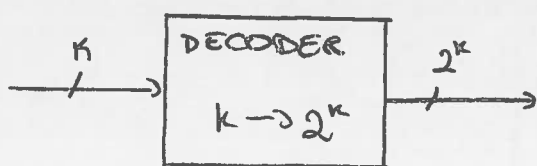 K
DECODER
k → 2^k
2^k